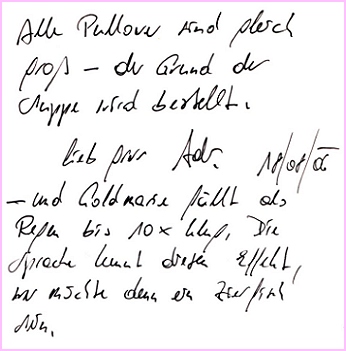 Alle Pullover sind gleich
groß – der Grund der
Gruppe wird bestellt.
lieb Adr. 18/08/05
– und Goldmarie fällt als
Regen bis 10x Die
Sprache kennt diesen Effekt,
wer möchte denn ein
sein.